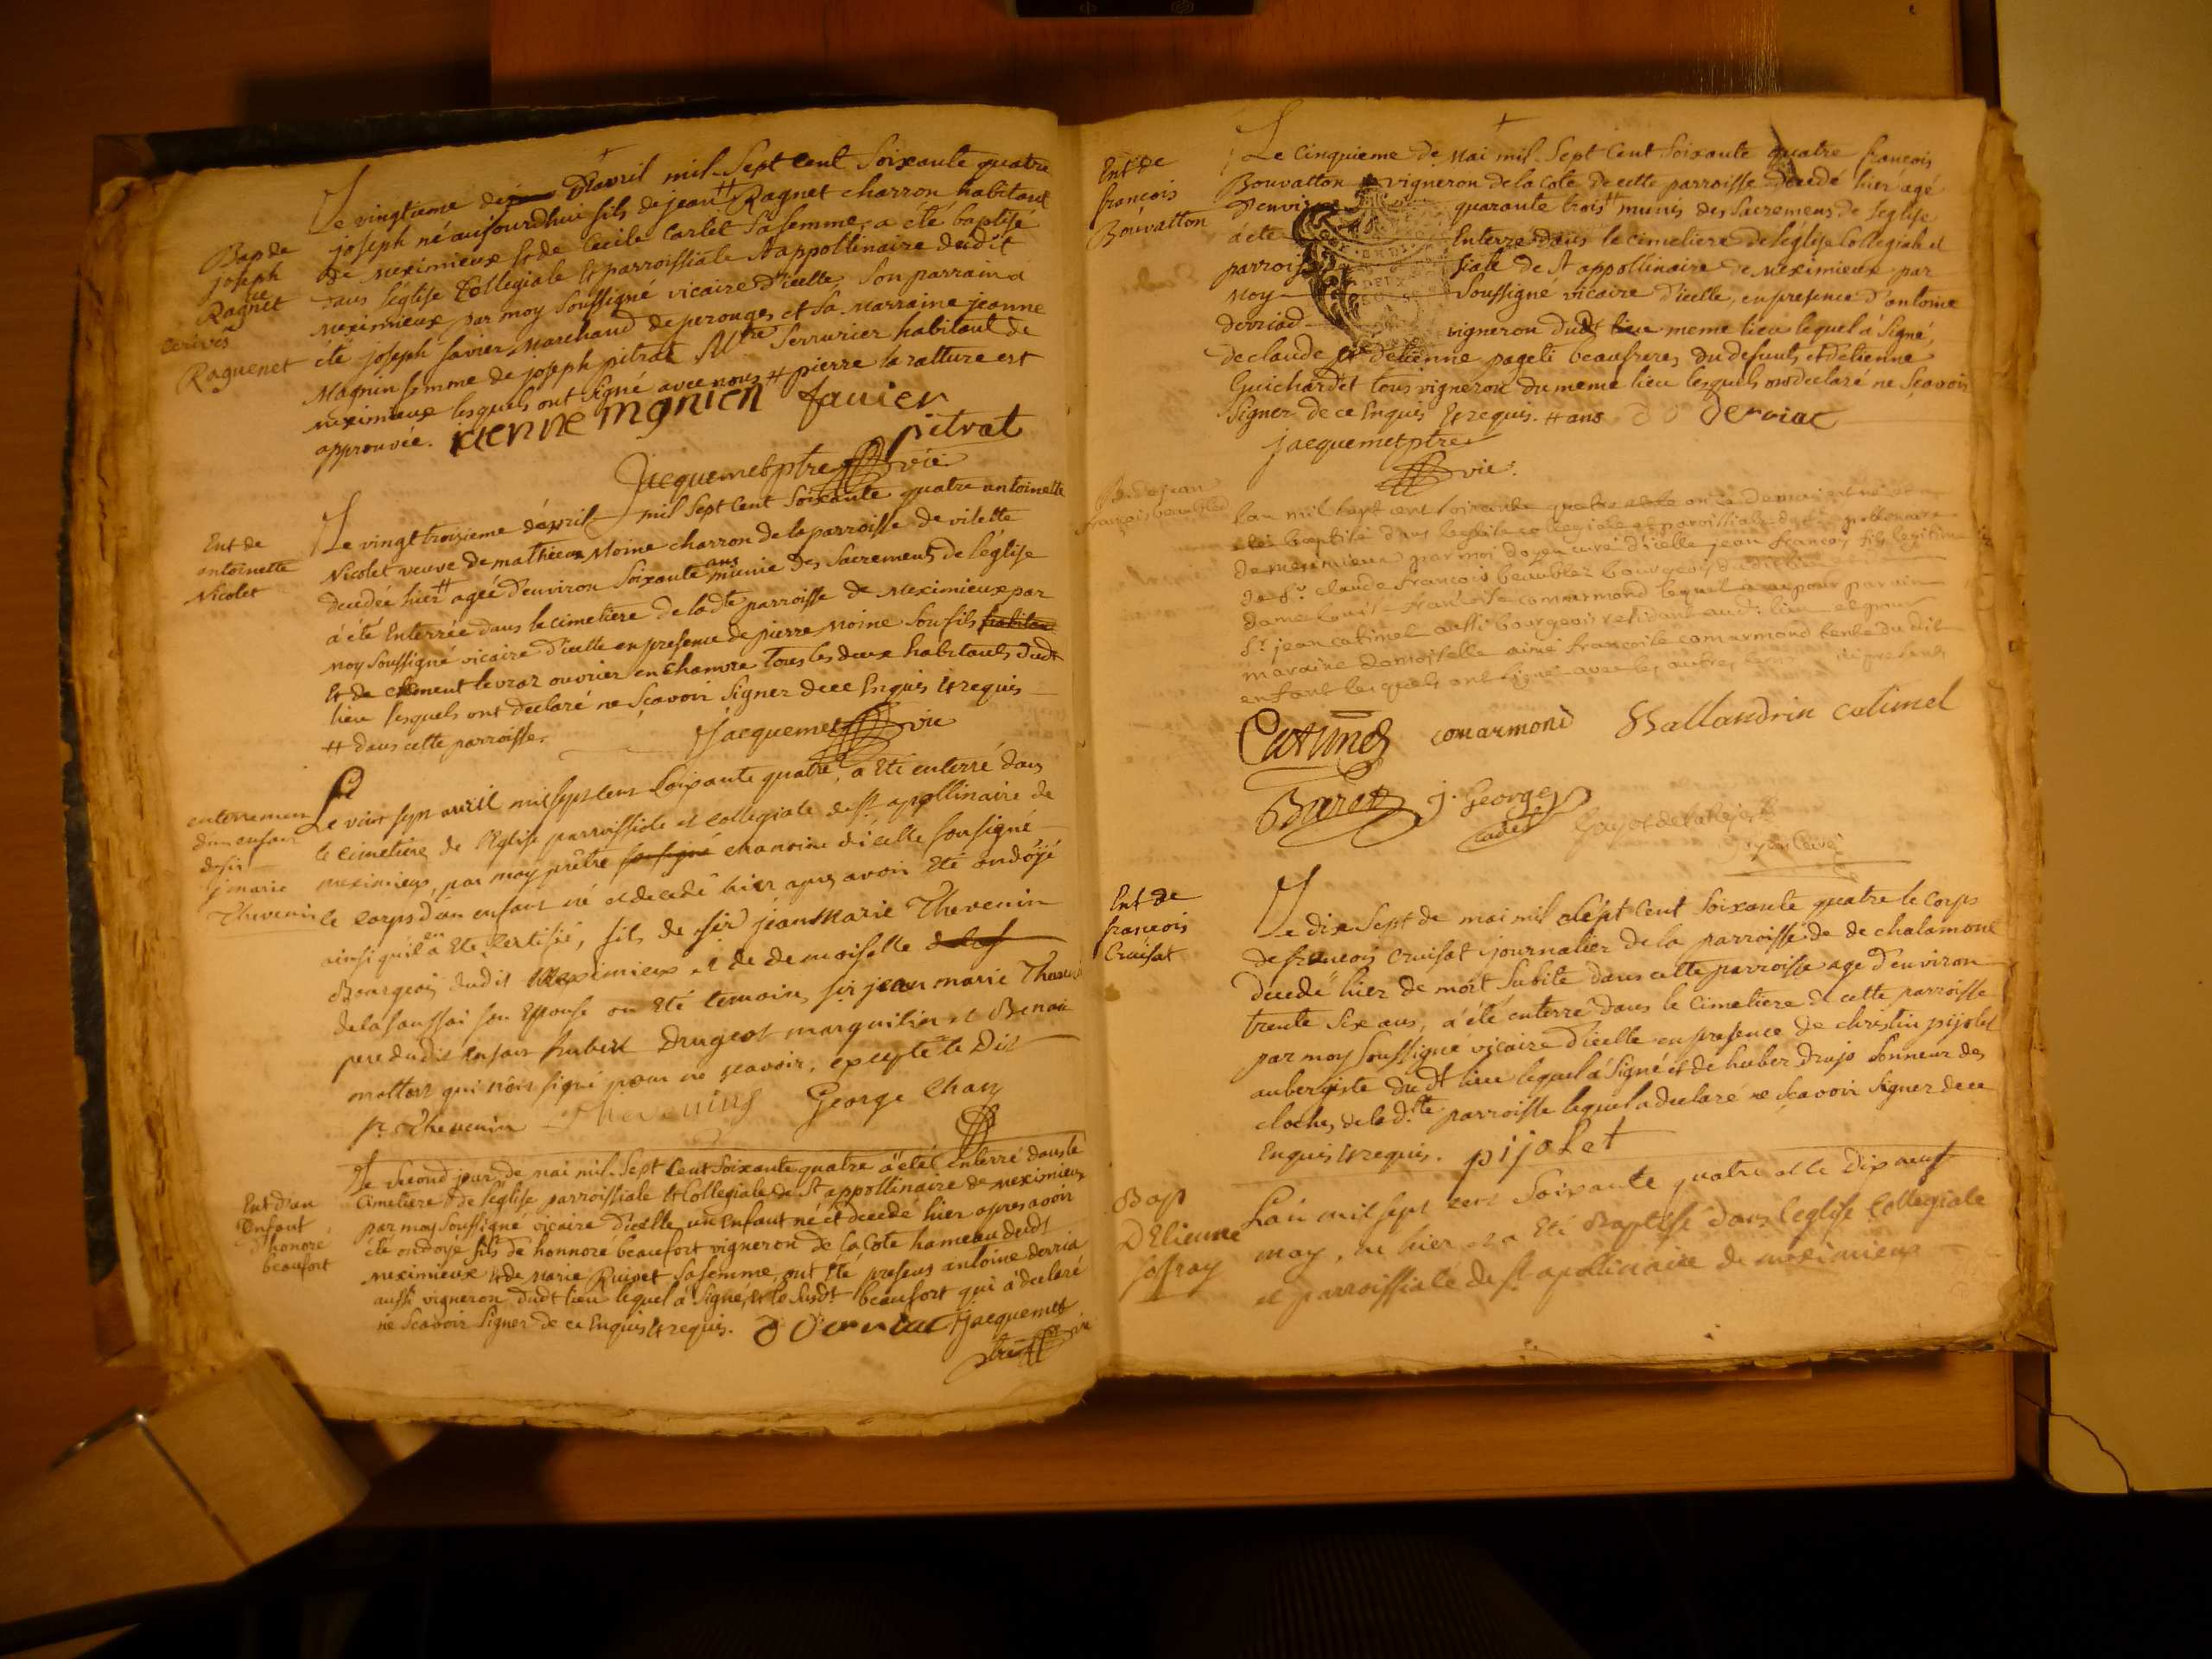 Bap de
joseph
Ragnet
Raguenet
Le vingtieme d'avril mil Sept Cent Soixante quatre
joseph né aujourdhui fils de jean # Ragnet charron habitant
de meximieux et de Cecile Carlet sa femme, a eté baptisé
dans l'église Collegiale et parroissiale St appollinaire dudit
meximieux par moy soussigné vicaire d'icelle, son parrain a
été joseph favier marchand de perouges et sa marraine jeanne
Magnin femme de joseph pitrat Mtre Serrurier habitant de
meximieux lesquels ont signé avec nous # pierre la rature est
approuvée.
favier
pitrat
jacquemet ptre vic
Ent de
antoinette
Nicolet
Le vingt troisieme d'avril mil Sept Cent Soixante quatre antoinette
Nicolet veuve de mathieux Moine charron de la parroisse de vilette
decedée hier # agée d'environ Soixante ans munie des Sacrements de l'église
á été Enterrée dans le cimetiere de ladte parroisse de meximieux par
moy soussigné vicaire d'icelle en presence de pierre moine son fils habitan
et de clement levrar ouvrier en chanvre tous les deux habitants dudt
lieu lesquels ont declaré ne sçavoir signer de ce Enquis et requis
# dans cette parroisse.
jacquemet vic
enterrement
d'un enfant
de sir
j marie
Thevenin
Le vint sept avril mil sept cens soixante quatre, a eté enterré dans
le cimetiere de l'Eglise parroissiale et collegiale de st appollinaire de
meximieux, par moy prêtre soussigné chanoine dicelle soussigné
le corps d'un enfant né et decedé hier apres avoir eté ondoyé
ainsi qu'il en a eté certifié, fils de sir jean Marie Thevenin
Bourgeois dudit Meximieux et de demoiselle
delasaussai son Epouse on eté temoins sir jean marie
pere dudit enfant hubert Drugeot marguilier et Benoit
motton qui n'ont signé pour ne sçavoir, excepté le Dit
sr Thevenin Thevenin George Chan
Ent d'un
Enfant
d'honoré
beaufort
Le second jour de mai mil Sept Cent Soixante quatre a eté Enterré dans le
cimetiere de l'eglise parroissiale et Collegiale de St appollinaire de meximieux
par moy soussigné vicaire d'icelle un Enfant né et decedé hier apres avoir
été ondoyé fils de honnoré beaufort vigneron de la Cote hameau dudt
meximieux et de marie Ruinet sa femme, ont été presens antoine derria
aussi vigneron dudt lieu lequel a signé, et le susdt beaufort qui a declaré
ne sçavoir signer de ce Enquis et requis. jacquemet
ptre vic
Ent de
francois
Bouvatton
Le Cinquieme de Mai mil Sept Cent Soixante quatre francois
Bouvatton vigneron de la Cote de cette parroisse decedé hier agé
d'envi quarante trois # munis des Sacremens de l'eglise
á eté Enterré dans le cimetiere de l'église Collegiale et
parrois siale de St appollinaire de meximieux par
moy soussigné vicaire d'icelle, en presence d'antoine
derriad vigneron dudt lieu meme lieu lequel a signé,
de claude et d'etienne pageti beaufreres du defunt, et d'etienne
Guichardet tous vigneron du meme lieu lesquels ont declaré ne sçavoir
signer de ce Enquis et requis. # ans derviac
jacquemet ptre
vic.
L'an mil sept cent soixante quatre
été baptisé dans l'eglise collegiale et paroissiale de st apollinaire
de meximieux par moi doyen curé d'icelle jean françois fils legitime
de sr. claude francois beaublez bourgeois dudit lieu
dame françoise comarmond lequel a eu pour parain
sr jean catimel aussi bourgeois residant audt. lieu et pour
maraine demoiselle aimé françoise comarmond tente du dit
enfant lesquels ont signé avec les autres
Catimel comarmond Ballandrin catimel
g. George
cadet
Ent de
francois
Cruisat
Le dix Sept de mai mil Sept Cent Soixante quatre le Corps
de francois Cruisat journalier de la parroisse de de chalamont
decedé hier de mort subite dans cette parroisse agé d'environ
trente six ans, a été enterré dans le Cimetiere de cette parroisse
par moy soussigné vicaire d'icelle en presence de christin pijolet
aubergiste dudt lieu lequel a signé et de huber drujo sonneur des
cloches de lad.te parroisse lequel a declaré ne sçavoir signer de ce
Enquis et requis. pijolet
Bap
D'Etienne
joffray
L'an mil sept cens soixante quatre et le dix neuf
may, né hier et a eté Baptisé dans l'eglise Collegiale
et parroissiale de st apollinaire de meximieux